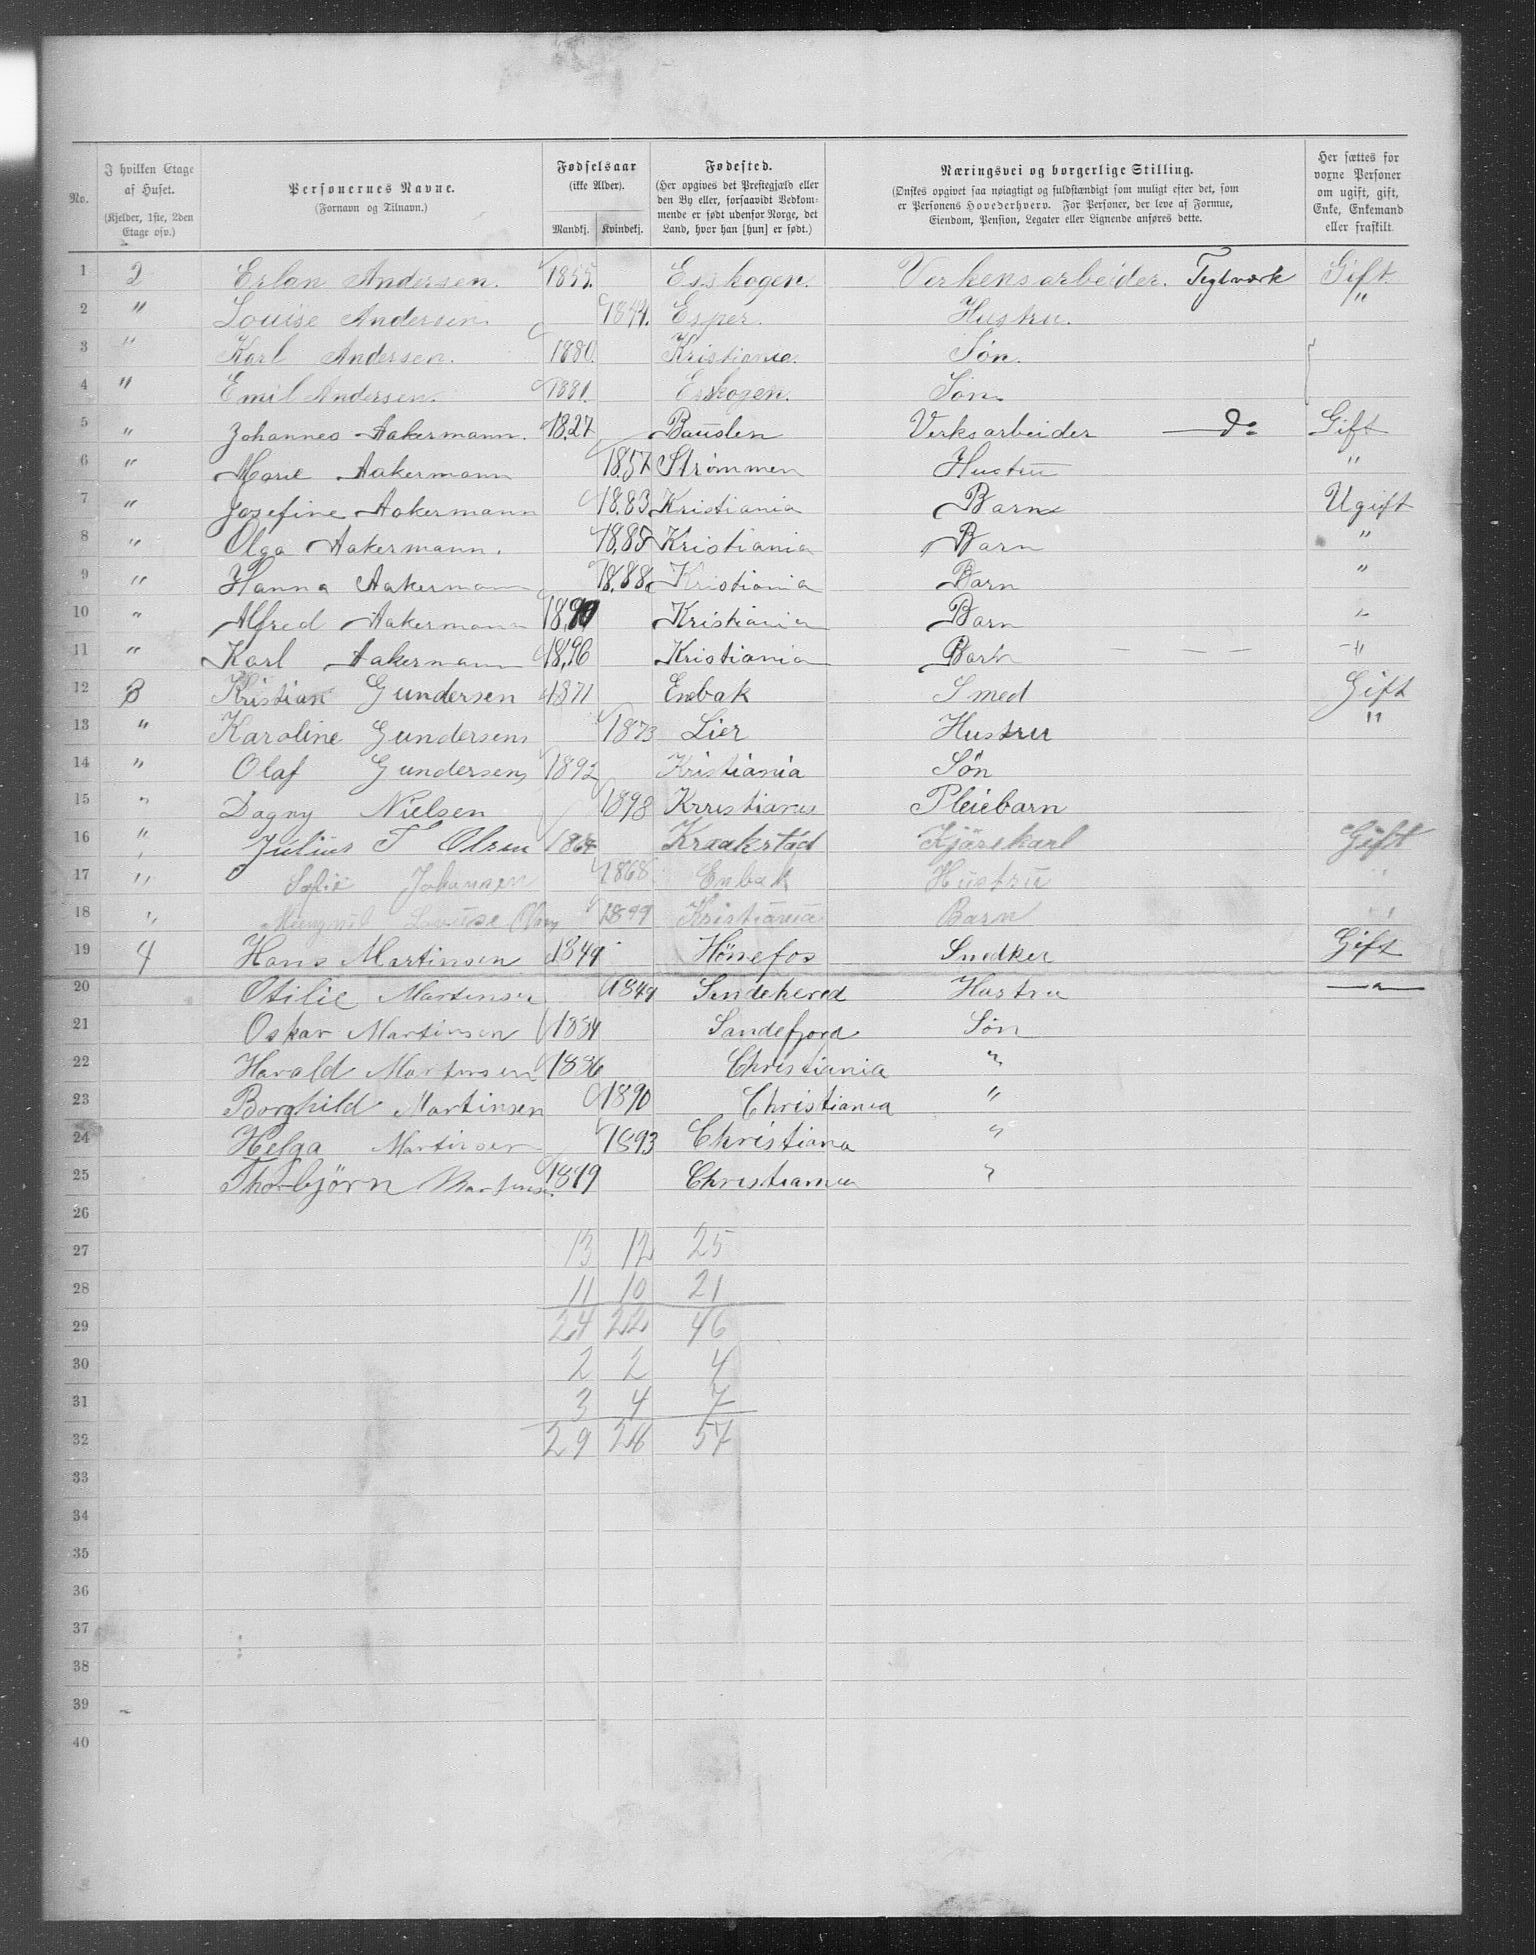 No.	I hvilken Etage af Huset. (Kjelder, 1ste, 2den Etage osv.)	Personernes Navne. (Fornavn og Tilnavn.)	Fødselsaar (ikke Alder). Mandkj. Kvindekj.	Fødested. (Her opgives det Prestegjæld eller den By eller, forsaavidt Vedkommende er født udenfor Norge, det Land, hvor han [hun] er født.)	Næringsvei og borgerlige Stilling. (Ønskes opgivet saa nøiagtigt og fuldstændigt som muligt efter det, som er Personens Hovederhverv. For Personer, der leve af Formue, Eiendom, Pension, Legater eller Lignende anføres dette.	Her sættes for voxne Personer om ugift, gift, Enke, Enkemand eller fraskilt.
1 2 Erlan Andersen. 1855. Esskogen. Verkensarbeider. Teglværk Gift.
2 " Louise Andersen. Esper. Hustru. "
3 " Karl Andersen. 1880. Kristiania. Søn.
4 " Emil Andersen. 1881. Esskogen. Søn.
5 " Johannes Aakermann. 1827 Verksarbeider — do Gift
6 " Marie Aakermann 1857 Strømmen Hustru "
7 " Josefine Aakermann 1883 Kristiania Barn Ugift
8 " Olga Aakermann. 1885 Kristiania Barn "
9 " Hanna Aakermann 1888 Kristiania Barn "
10 " Alfred Aakermann 1890 Kristiania Barn "
11 " Karl Aakermann 1896 Kristiania Barn — — — "
12 3 Kristian Gundersen 1871 Enebak Smed Gift
13 " Karoline Gundersen 1873 Lier Hustru "
14 " Olaf Gundersen 1892 Kristiania Søn
15 " Dagny Nielsen 1898 Krristiania Pleiebarn
16 " Julius T Olsen Kraakstad Kjørekarl Gift
17 " Sofie Johansen 1868 Enbak Hustru "
18 " Louise Olsen 1899 Kristiania Barn "
19 4 Hans Martinsen 1849 Hönefos Snedker Gift
20 Otilie Martinsen 1849 Sandeherred Hustru — " —
21 Oskar Martinsen 1884 Sandefjord Søn
22 Harald Martinsen 1886 Christiania "
23 Borghild Martinsen 1890 Christiania "
24 Helga Martinsen 1893 Christiana "
25 Thorbjörn Martinsen. 1899 Christiania "
26
27 13 12 25
28 11 10 21
29 24 22 46
30 2 2 4
31 3 4 7
32 29 28 57
33
34
35
36
37
38
39
40